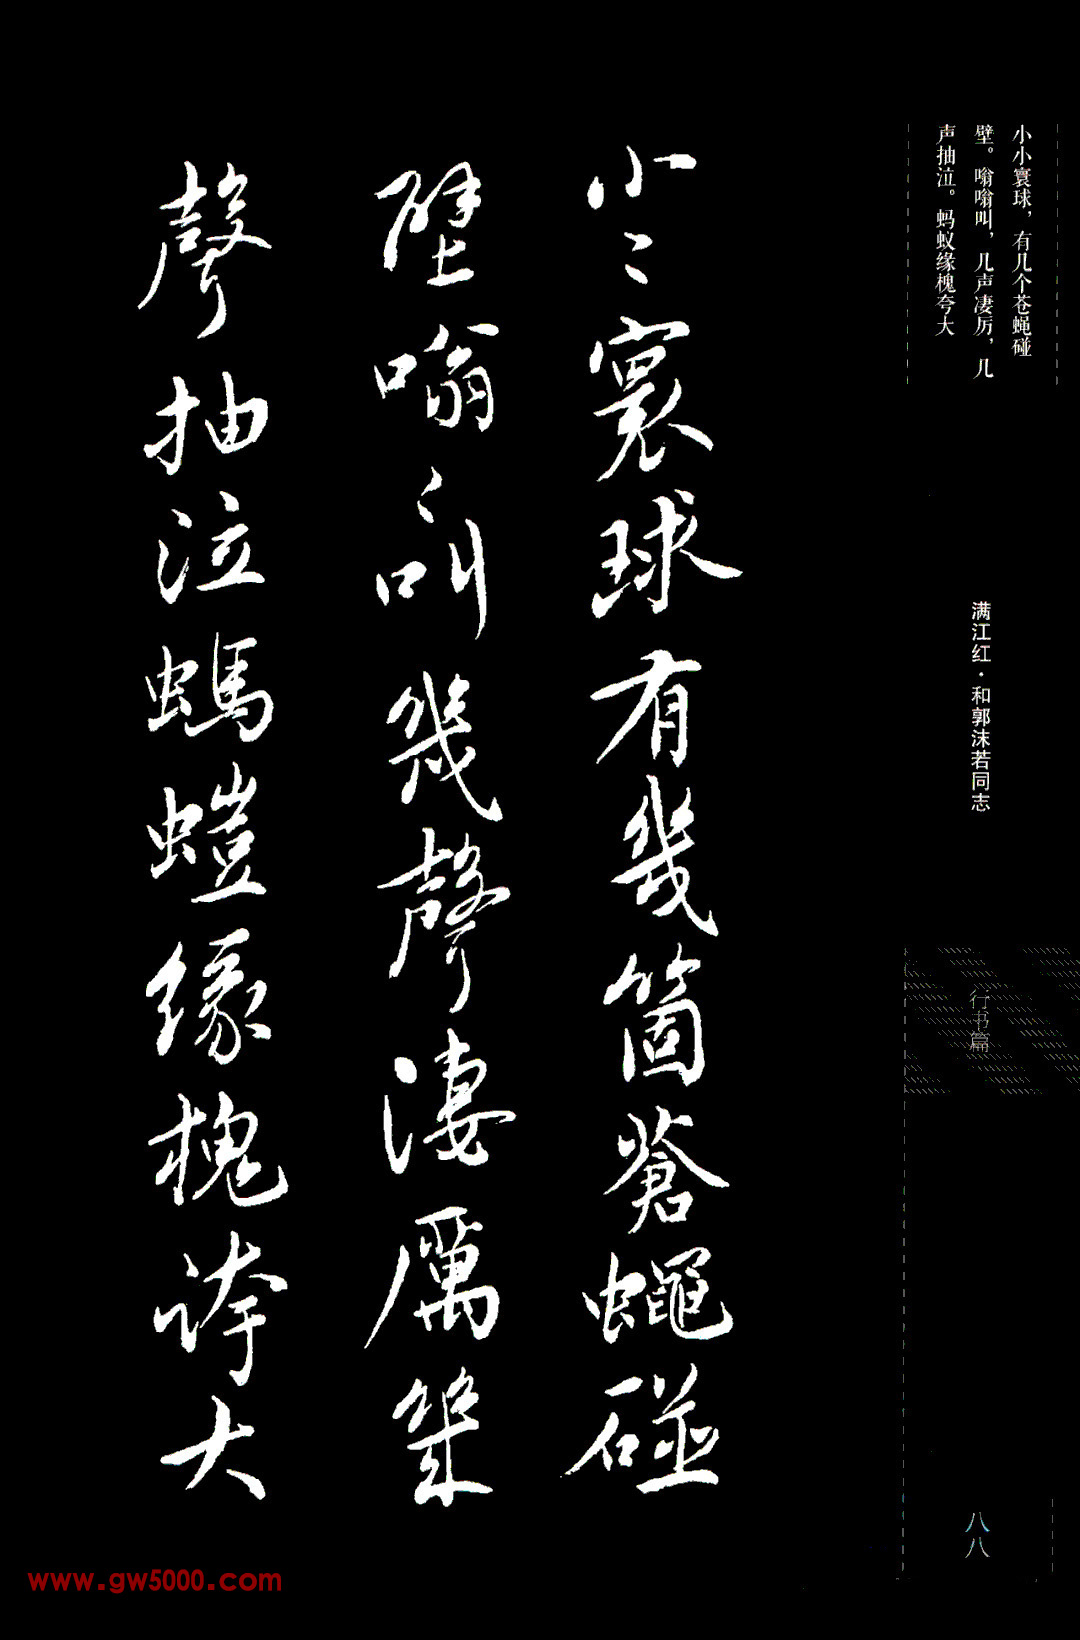 小小寰球，有几个苍蝇碰
壁。嗡嗡叫，几声凄厉，几
声抽泣。蚂蚁缘槐夸大
满江红·和郭沫若同志
行书篇
八八
小〻寰球有幾箇蒼蠅碰
壁嗡〻叫幾聲淒厲幾
聲抽泣螞螘緣槐誇大
www.gw5000.com